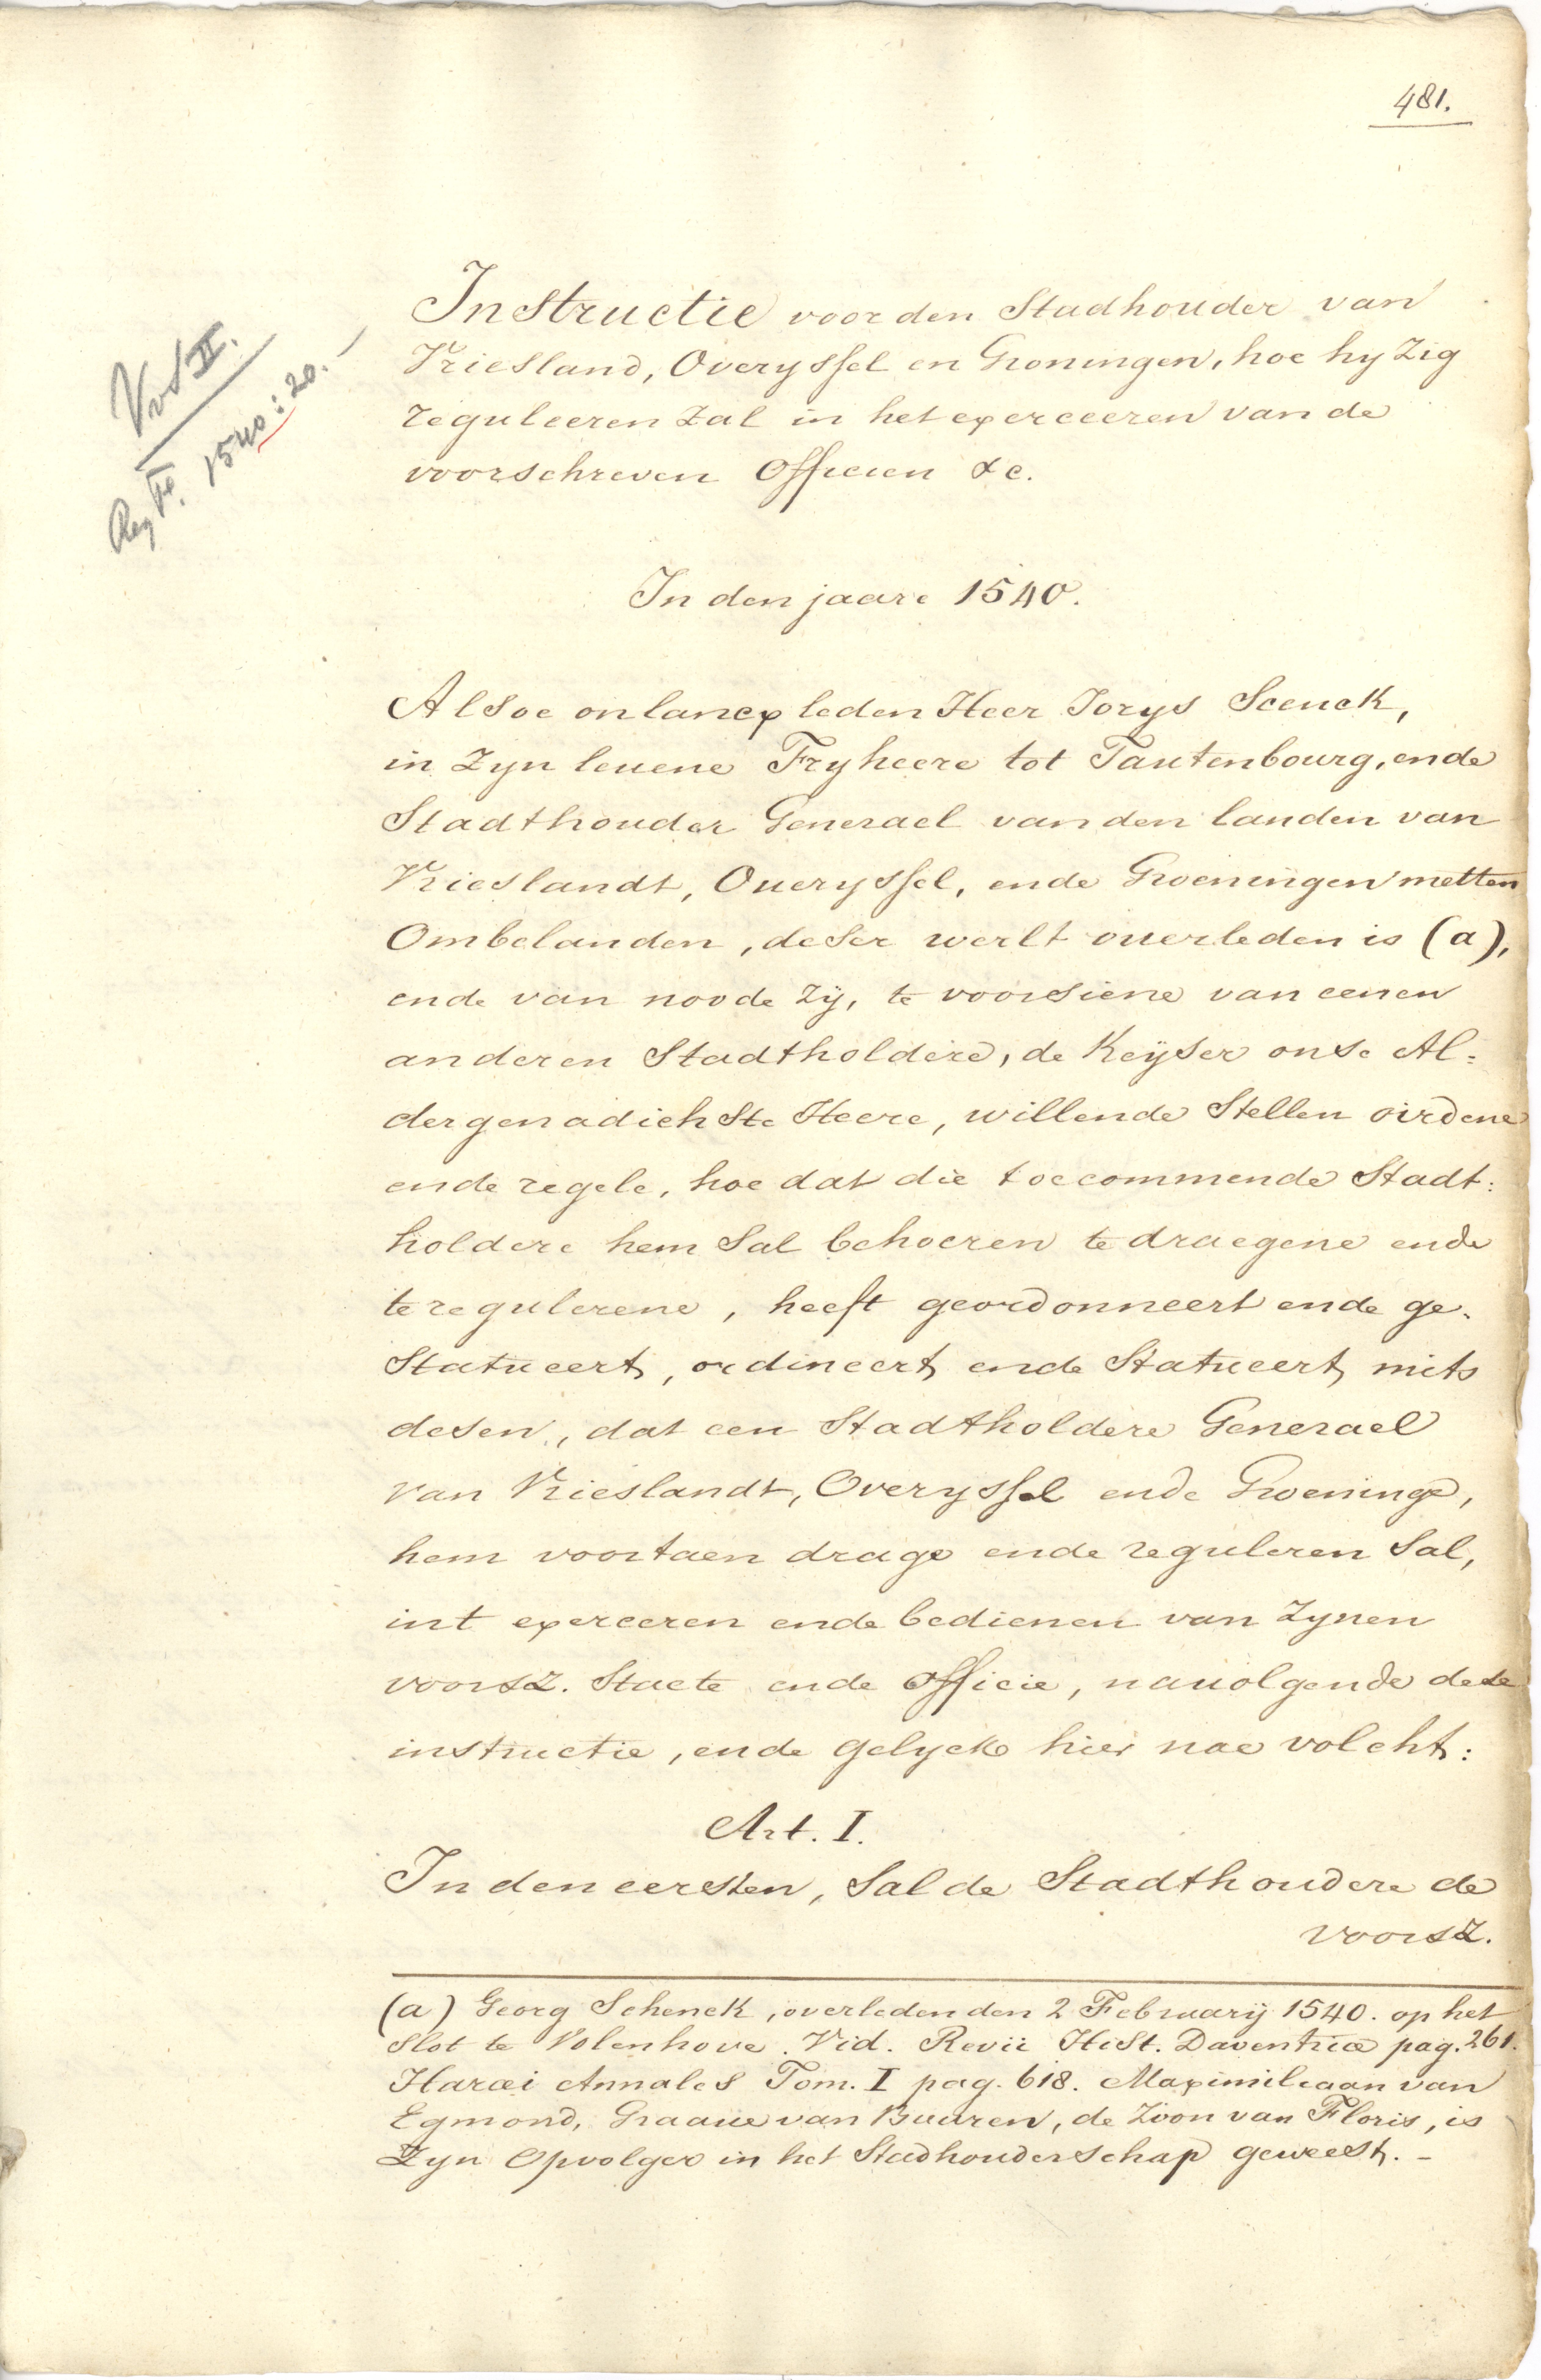 481.
Vol II.
Reg Fo. 1540:20.
Instructie voor den Stadhouder van
Vriesland, Overyssel en Groningen, hoe hy zig
reguleeren zal in het exerceeren van de
voorschreven Officien &c.
In den jaare 1540.
Alsoe onlancx leden Heer Jorys Scenck,
in zyn leuene Fryheere tot Tautenbourg, ende
Stadthouder Generael van den landen van
Vrieslandt, Oueryssel, ende Groeningen metten
Ombelanden, deser werlt ouerleden is (a),
ende van noode zÿ, te voorsiene van eenen
anderen Stadtholdere, de Keÿser onse Al=
dergenadichste Heere, willende stellen oirdene
ende regele, hoe dat die toecommende Stadt:
holdere hem sal behoeren te draegene ende
te regulerene, heeft geordonneert ende ge-
statueert, ordineert ende statueert mits
desen, dat een Stadtholdere Generael
van Vrieslandt, Overyssel ende Groeninge,
hem voortaen drage ende reguleren sal,
int exerceren ende bedienen van zynen
voorsz. Staete ende officie, nauolgende dese
instructie, ende gelycke hier nae volcht:
Art. I.
In den eersten, sal de Stadthoudere de
voorsz.
(a) Georg Schenck, overleden den 2 Februarÿ 1540. op het
slot te Volenhove. Vid. Revii Hist. Daventriæ pag. 261.
Haræi Annales Tom. I pag. 618. Maximiliaan van
Egmond, Graave van Buuren, de Zoon van Floris, is
Zyn Opvolger in het Stadhouderschap geweest. -